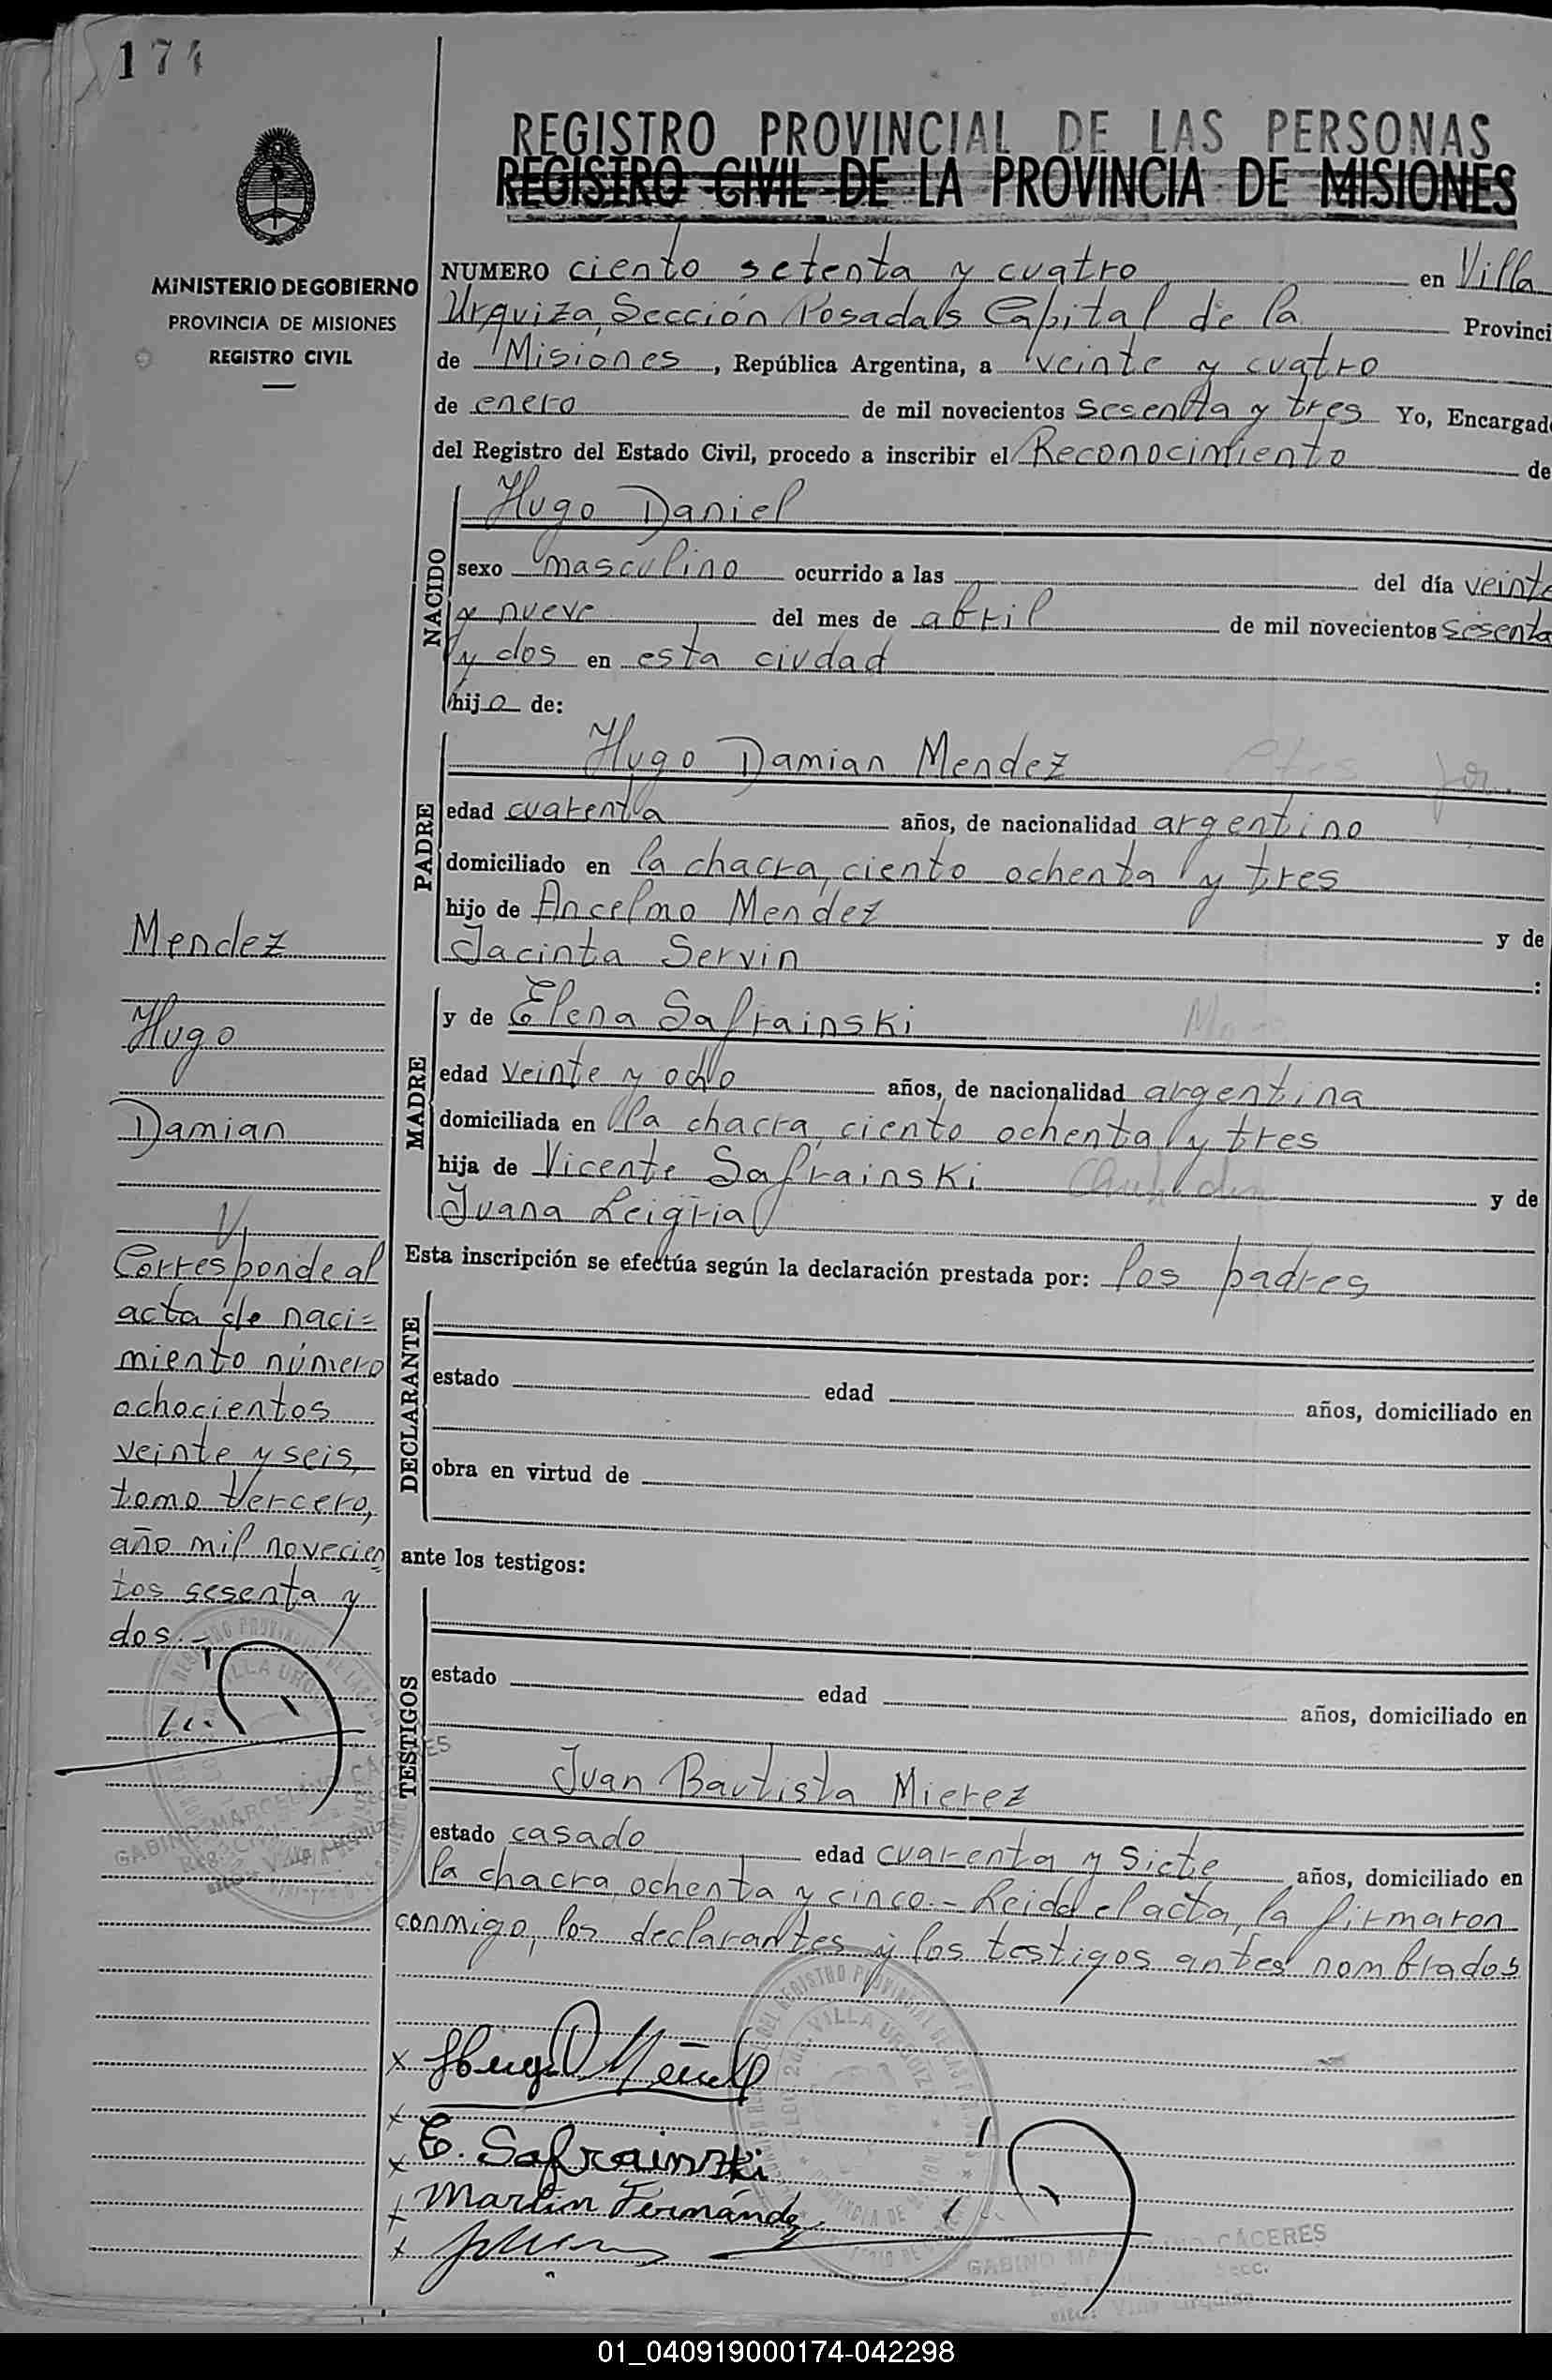 174
REGISTRO PROVINCIAL DE LAS PERSONAS
REGISTRO CIVIL DE LA PROVINCIA DE MISIONES
MINISTERIO DE GOBIERNO
PROVINCIA DE MISIONES
REGISTRO CIVIL
NUMERO ciento setenta y cuatro en Villa
Urquiza, Sección Posadas Capital de la Provinci
de Misiones, República Argentina, a veinte y cuatro
de enero de mil novecientos sesenta y tres Yo, Encargad
del Registro del Estado Civil, procedo a inscribir el Reconocimiento de
NACIDO
Hugo Daniel
sexo masculino ocurrido a las del día veinte
y nueve del mes de abril de mil novecientos sesenta
y dos en esta ciudad
hijo de:
PADRE
Hugo Damian Mendez
edad cuarenta años, de nacionalidad argentino
domiciliado en la chacra, ciento ochenta y tres
hijo de Ancelmo Mendez y de
Jacinta Servin :
MADRE
y de Elena Safrainski
edad veinte y ocho años, de nacionalidad argentina
domiciliada en la chacra, ciento ochenta y tres
hija de Vicente Safrainski y de
Juana
Esta inscripción se efectúa según la declaración prestada por: los padres
DECLARANTE
estado edad años, domiciliado en
obra en virtud de
ante los testigos:
TESTIGOS
estado edad años, domiciliado en
Juan Bautista Mierez
estado casado edad cuarenta y siete años, domiciliado en
la chacra, ochenta y cinco.- Leida el acta, la firmaron
conmigo, los declarantes y los testigos antes nombrados
Mendez
Hugo
Damian
Corresponde al
acta de naci=
miento número
ochocientos
veinte y seis,
tomo tercero,
año mil novecien
tos sesenta y
dos.-
VILLA URQUIZA
GABINO MARCELINO CÁCERES
x Hugo
x E. Safrainski
x Martin Fernández
VILLA URQUIZA
PROVINCIA DE
GABINO MARCELINO CÁCERES
01_040919000174-042298